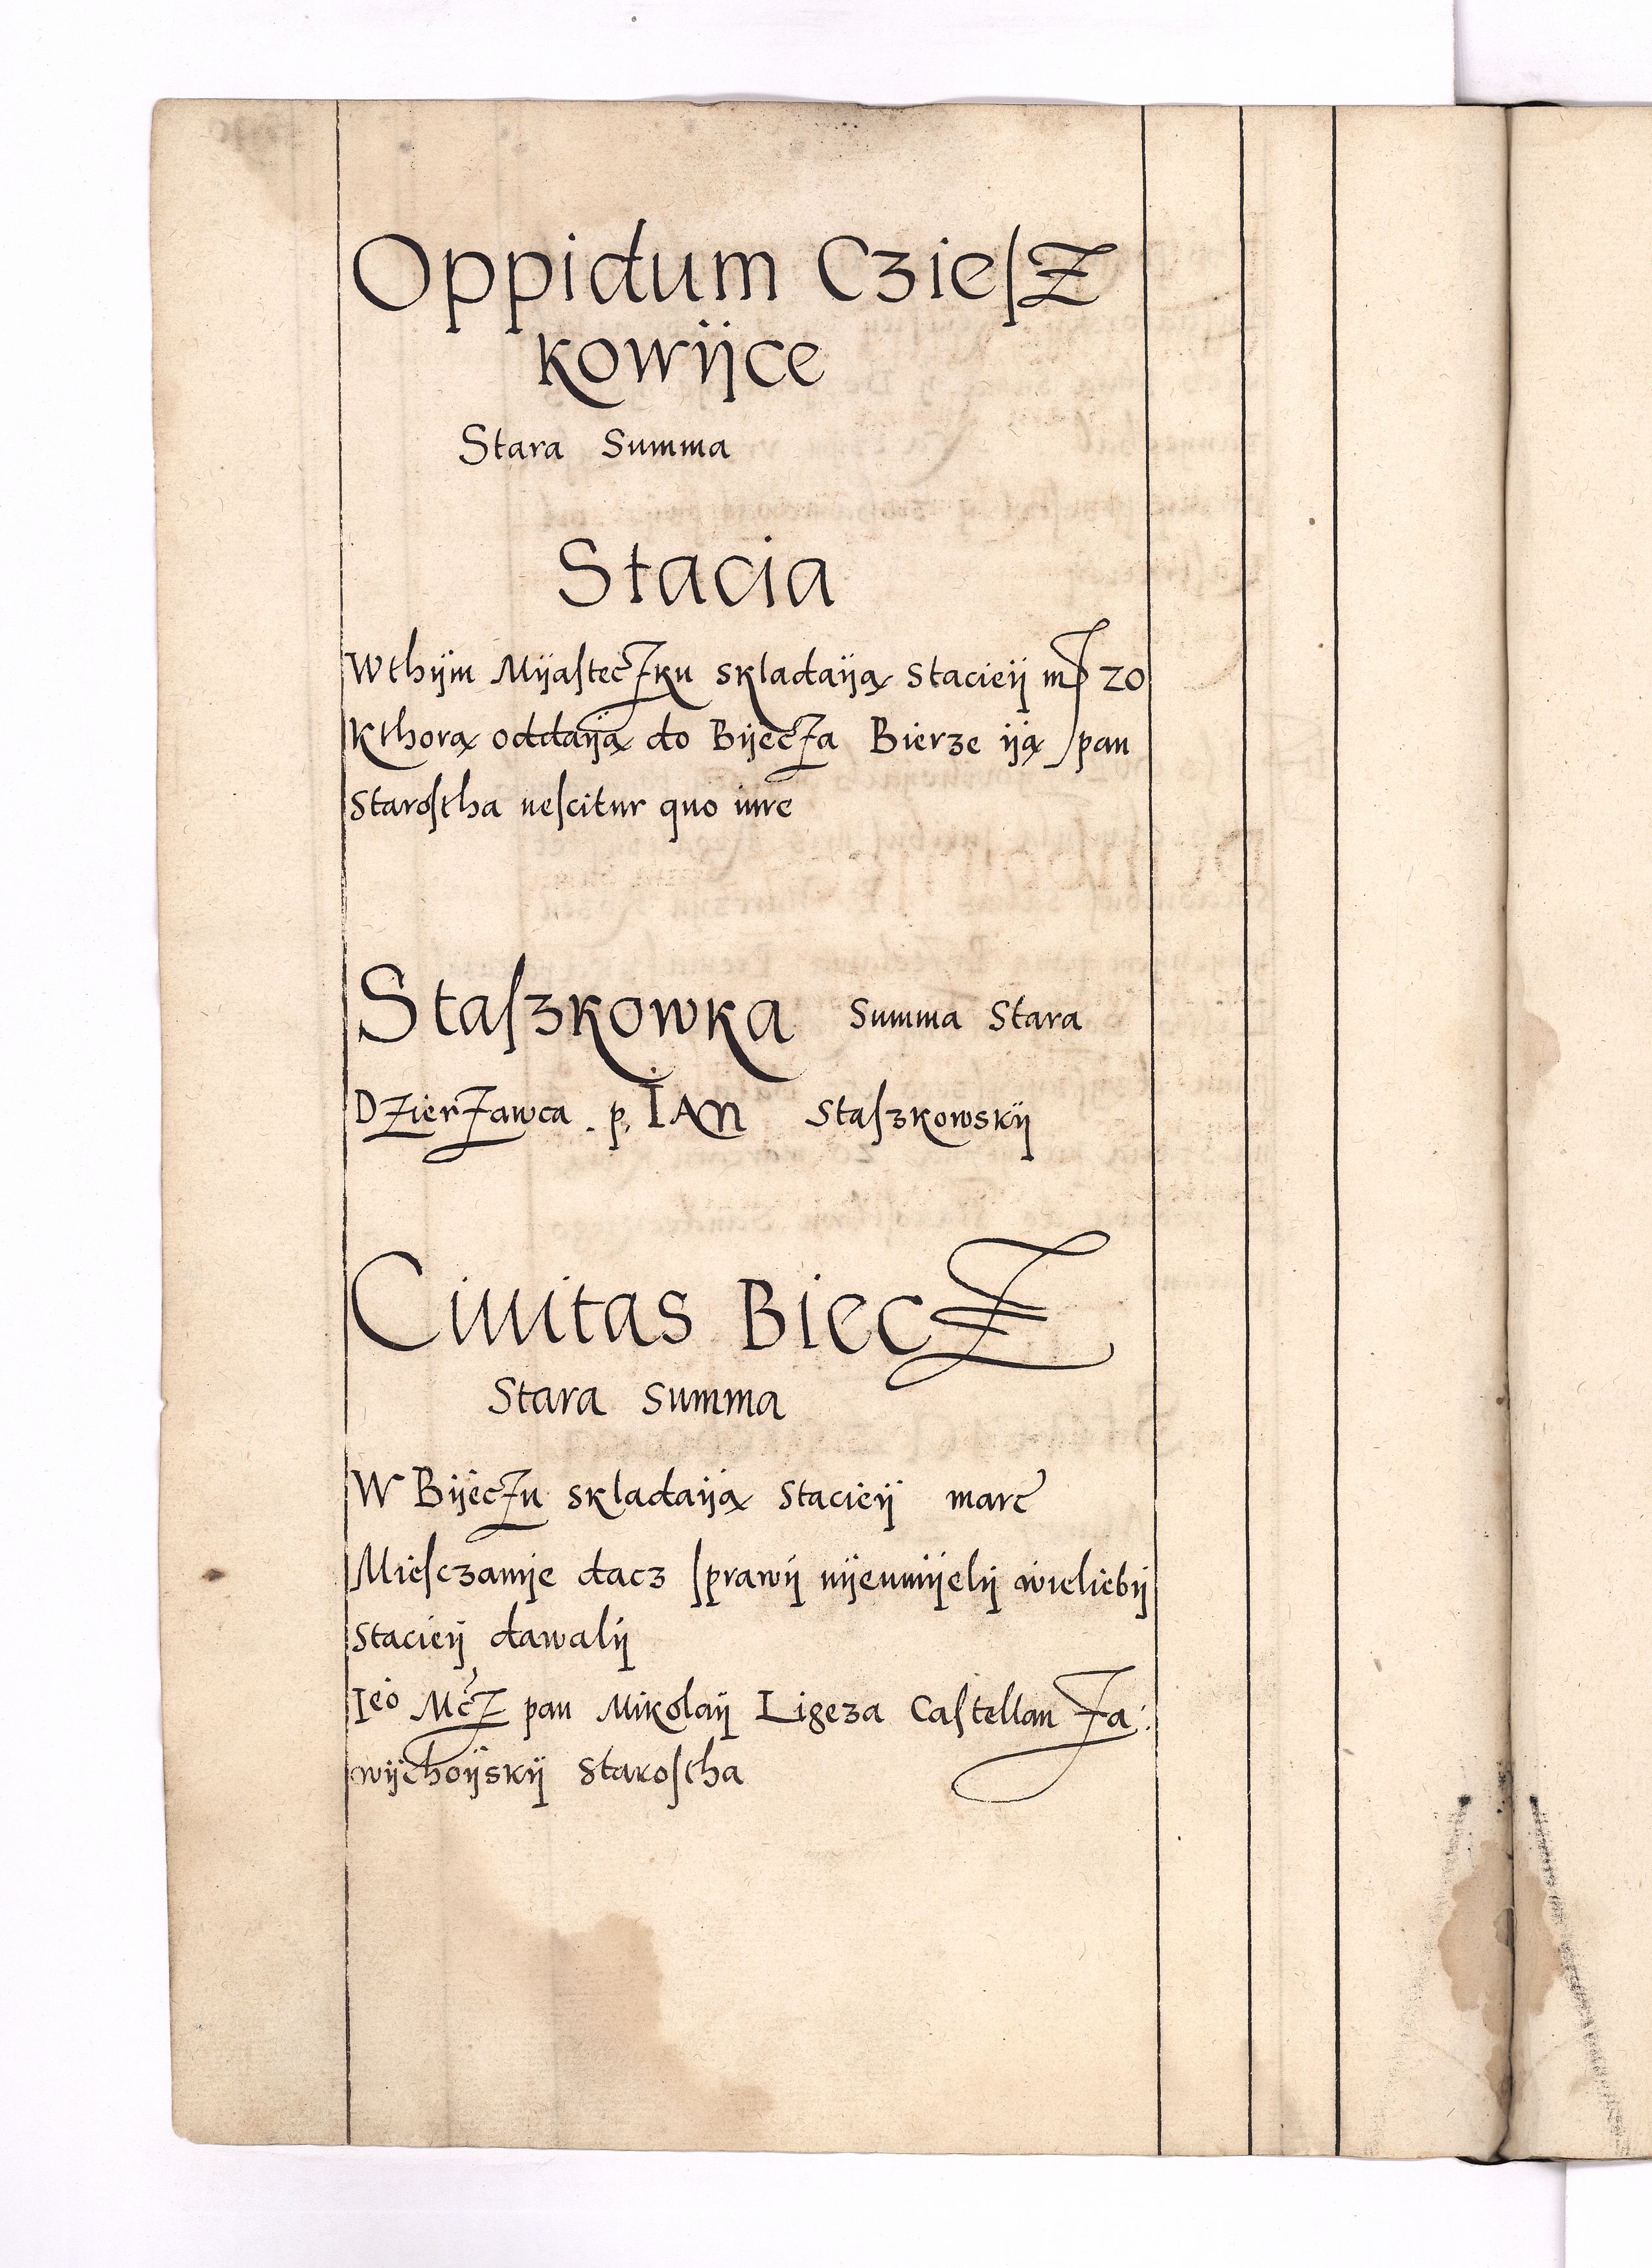 Oppidum Cziesz
kowijce
Stara Summa
Stacia
Wthijm Mijasteczku skladaiją Stacieij mp 20
Kthorą oddaiją do Bijecza Bierze iją pan
Starostha nescitur quo iure
Staszkowka Summa Stara
Dzierzawca . p. IAn Staszkowskij
Ciuitas Biecz
Stara Summa
W Bijeczu skladaiją Stacieij marc
Miesczanije dacz sprawij nijeumijelij wieliebij
Stacieij dawalij
Ieo Mcz pan Mikolaij Ligeza Castellan Za:
wijchoijskij Starostha